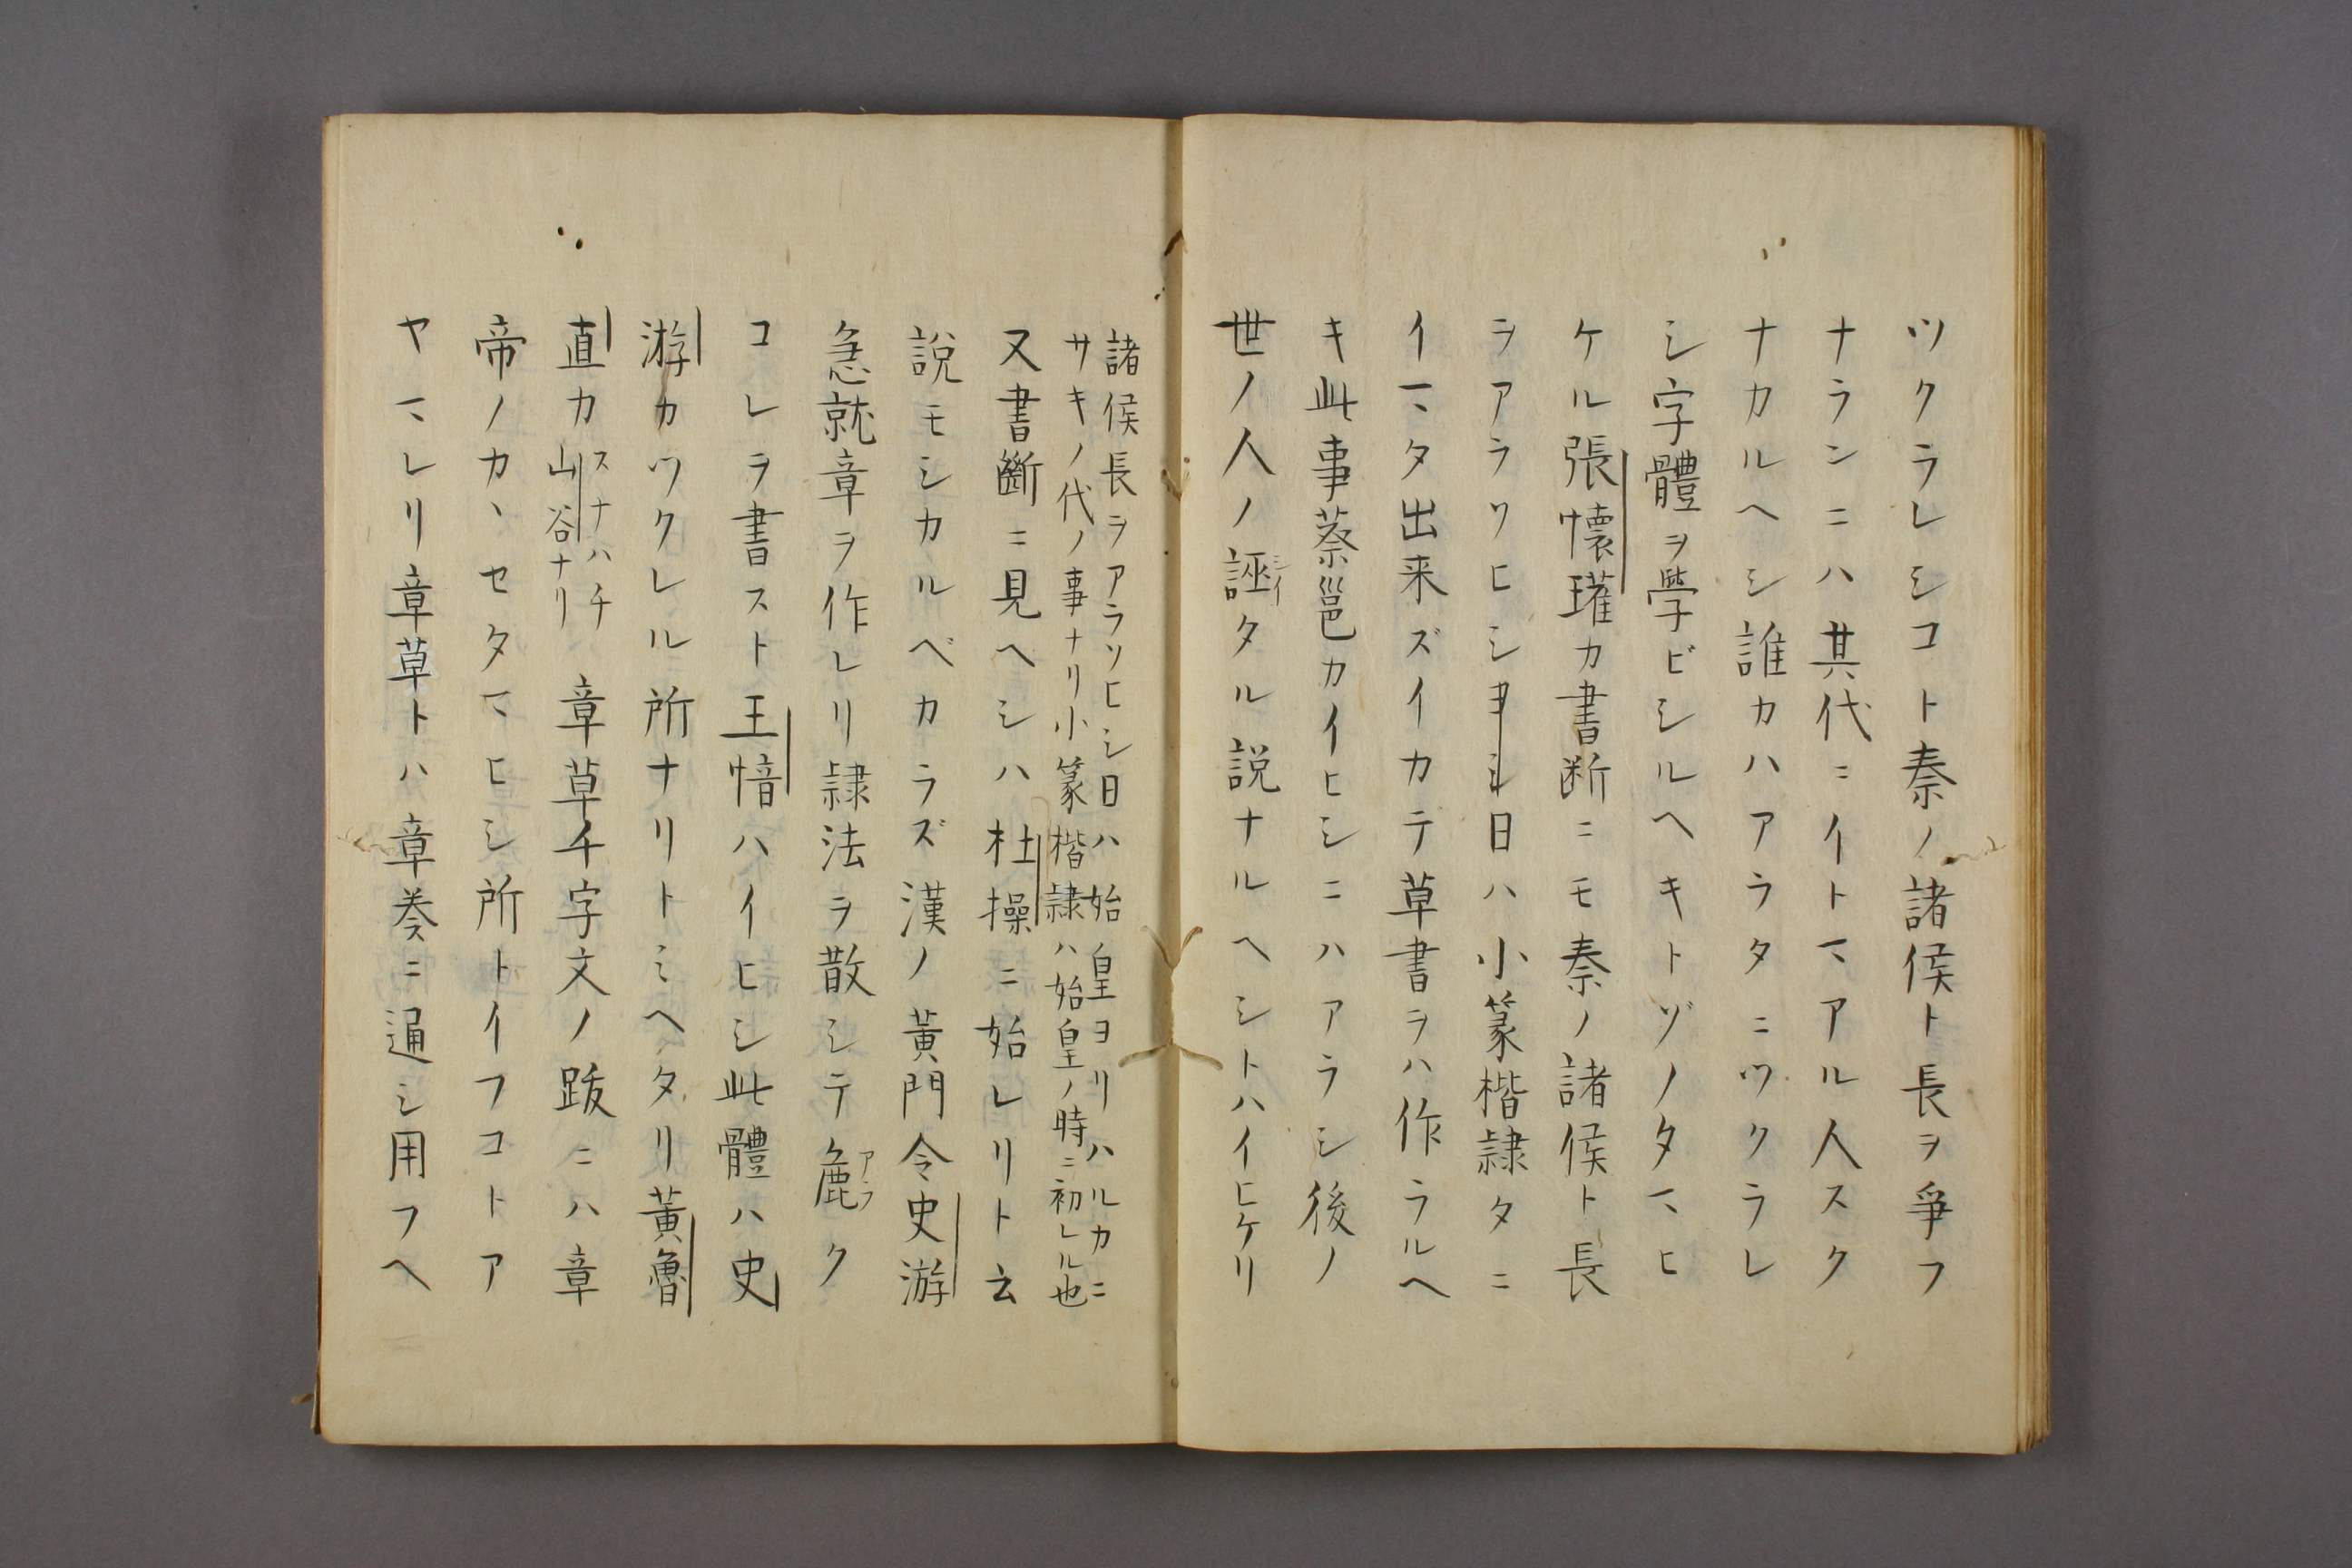 ツクラレシコト秦ノ諸侯ト長ヲ爭フ
ナランニハ其代ニイトマアル人スク
ナカルヘシ誰カハアラタニツクラレ
シ字體ヲ學ビシルヘキトゾノタマヒ
ケル張懷瓘カ書断ニモ秦ノ諸侯ト長
ヲアラソヒシヿシ日ハ小篆楷隷タニ
イマタ出来ズイカテ草書ヲハ作ラルヘ
キ此事蔡邕カイヒシニハアラシ後ノ
世ノ人ノ誣タル説ナルヘシトハイヒケリ
シイ
諸侯長ヲアラソヒシ日ハ始皇ヨリハルカニ
サキノ代ノ事ナリ小篆楷隷ハ始皇ノ時ニ初レル也
又書斷ニ見ヘシハ杜操ニ始レリト云
説モシカルベカラズ漢ノ黃門令史游
急就章ヲ作レリ隷法ヲ散シテ麁ク
アラ
コレヲ書スト王愔ハイヒシ此體ハ史
游カツクレル所ナリトミヘタリ黃魯
直カ
スナハチ
山谷ナリ
章草千字文ノ跋ニハ章
帝ノカヽセタマヒシ所トイフコトア
ヤマレリ章草トハ章奏ニ通シ用フヘ